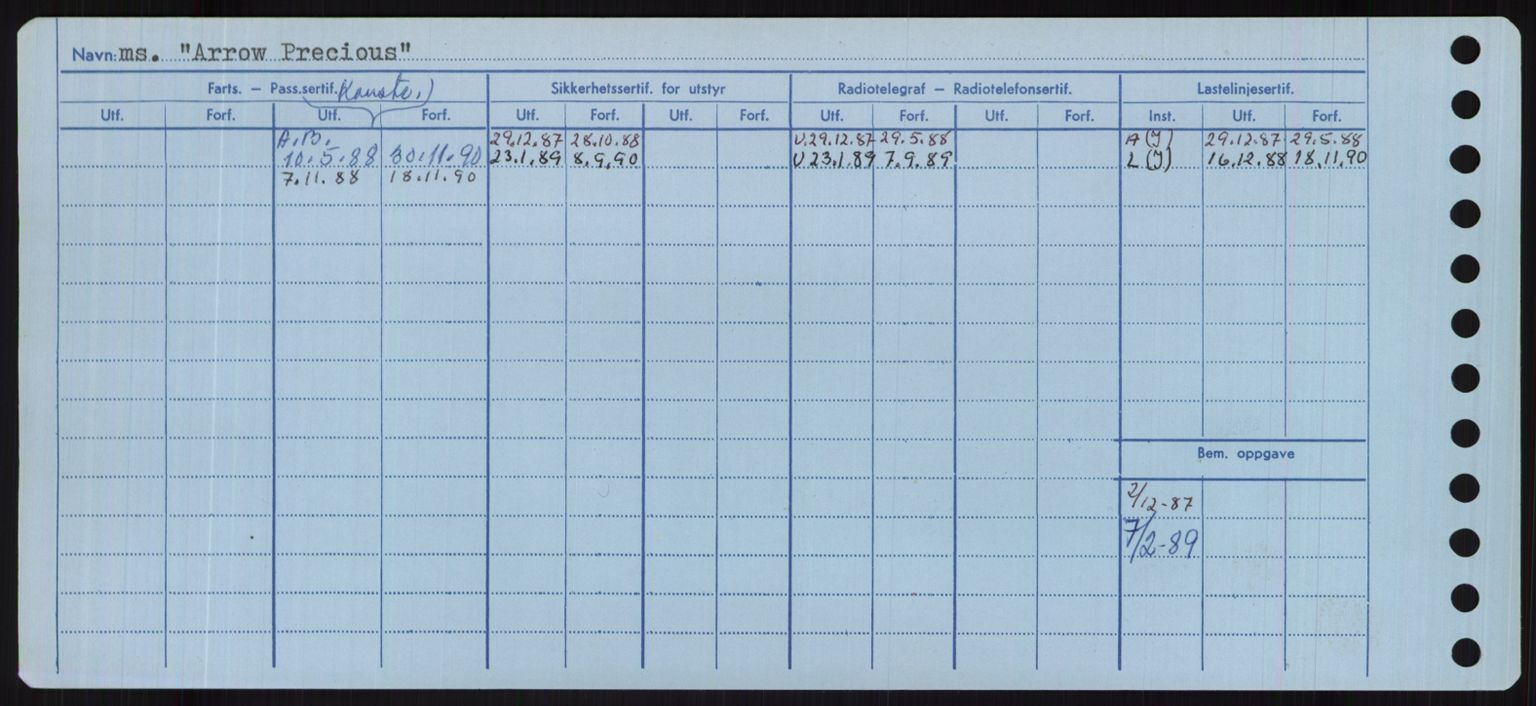 Navn: ms. "Arrow Precious"
Farts. — Pass.sertif. Sikkerhetssertif. for utstyr Radiotelegraf — Radiotelefonsertif. Lastelinjesertif.
Utf. Forf. Utf. Forf. Utf. Forf. Utf. Forf. Utf. Forf. Utf. Forf. Inst. Utf. Forf.
A.B. 29.12.87 28.10.88 U.29.12.87 29.5.88 A (Y) 29.12.87 29.5.88
10.5.88 30.11.90 23.1.89 8.9.90 U 23.1.89 7.9.89 L (Y) 16.12.88 18.11.90
7.11.88 18.11.90
Bem. oppgave
2/12-87
7/2-89